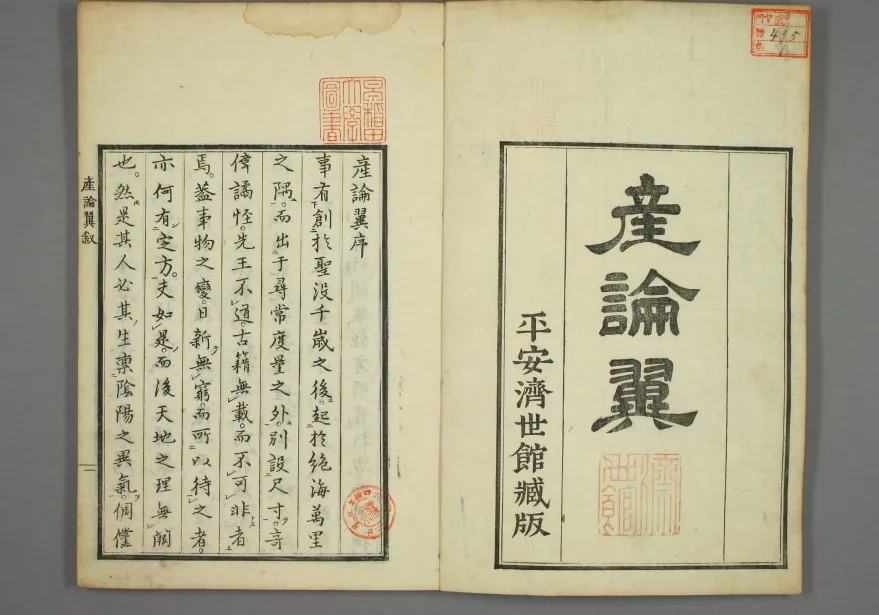 産論翼
平安濟世館藏版
485
早稲田
大學
圖書
産論翼序
事有創於聖没千歳之後。起於絶海萬里
之隅。而出于尋常度量之外。別設尺寸。奇
偉譎恠。先王不道。古籍無載。而不可非者
焉。蓋事物之變。日新無窮。而所以待之者。
亦何有定方。夫如是。而後天地之理無闕
也。然是其人必其生稟陰陽之異氣。倜儻
産論翼叙
一